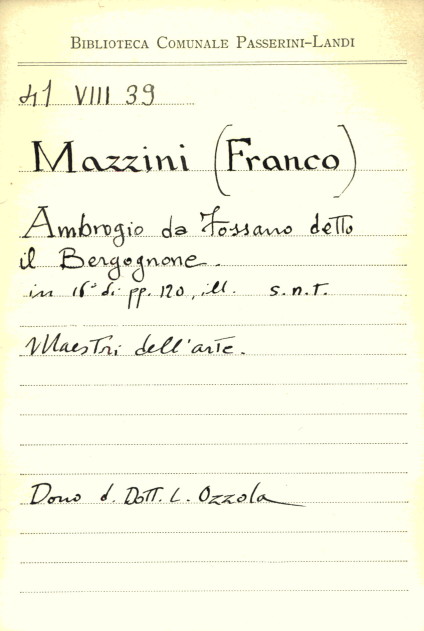 BIBLIOTECA COMUNALE PASSERINI-LANDI
41 VIII 39
Mazzini (Franco)
Ambrogio da Fossano detto
il Bergognone.
in 16° di pp. 120, ill. s.n.t.
Maestri dell'arte.
Dono d. Dott. L. Ozzola